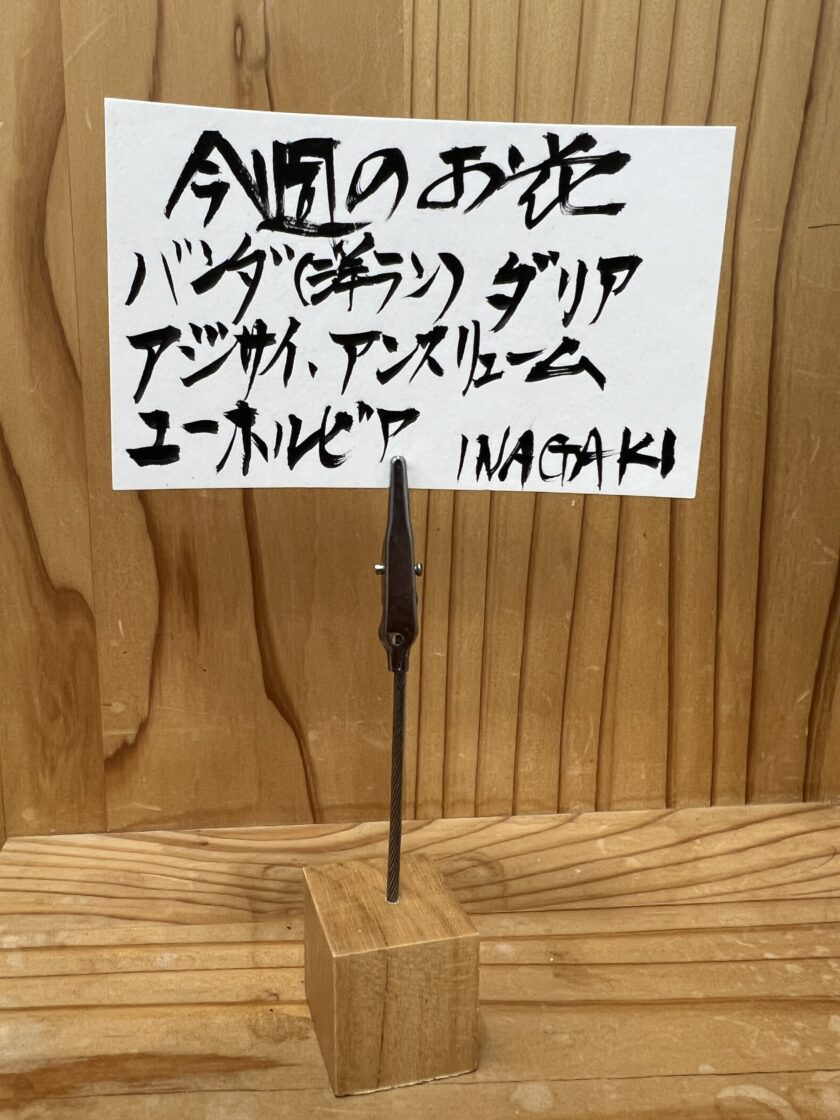 今週のお花
バンダ(洋ラン) ダリア
アジサイ、アンスリューム
ユーホルビア INAGAKI